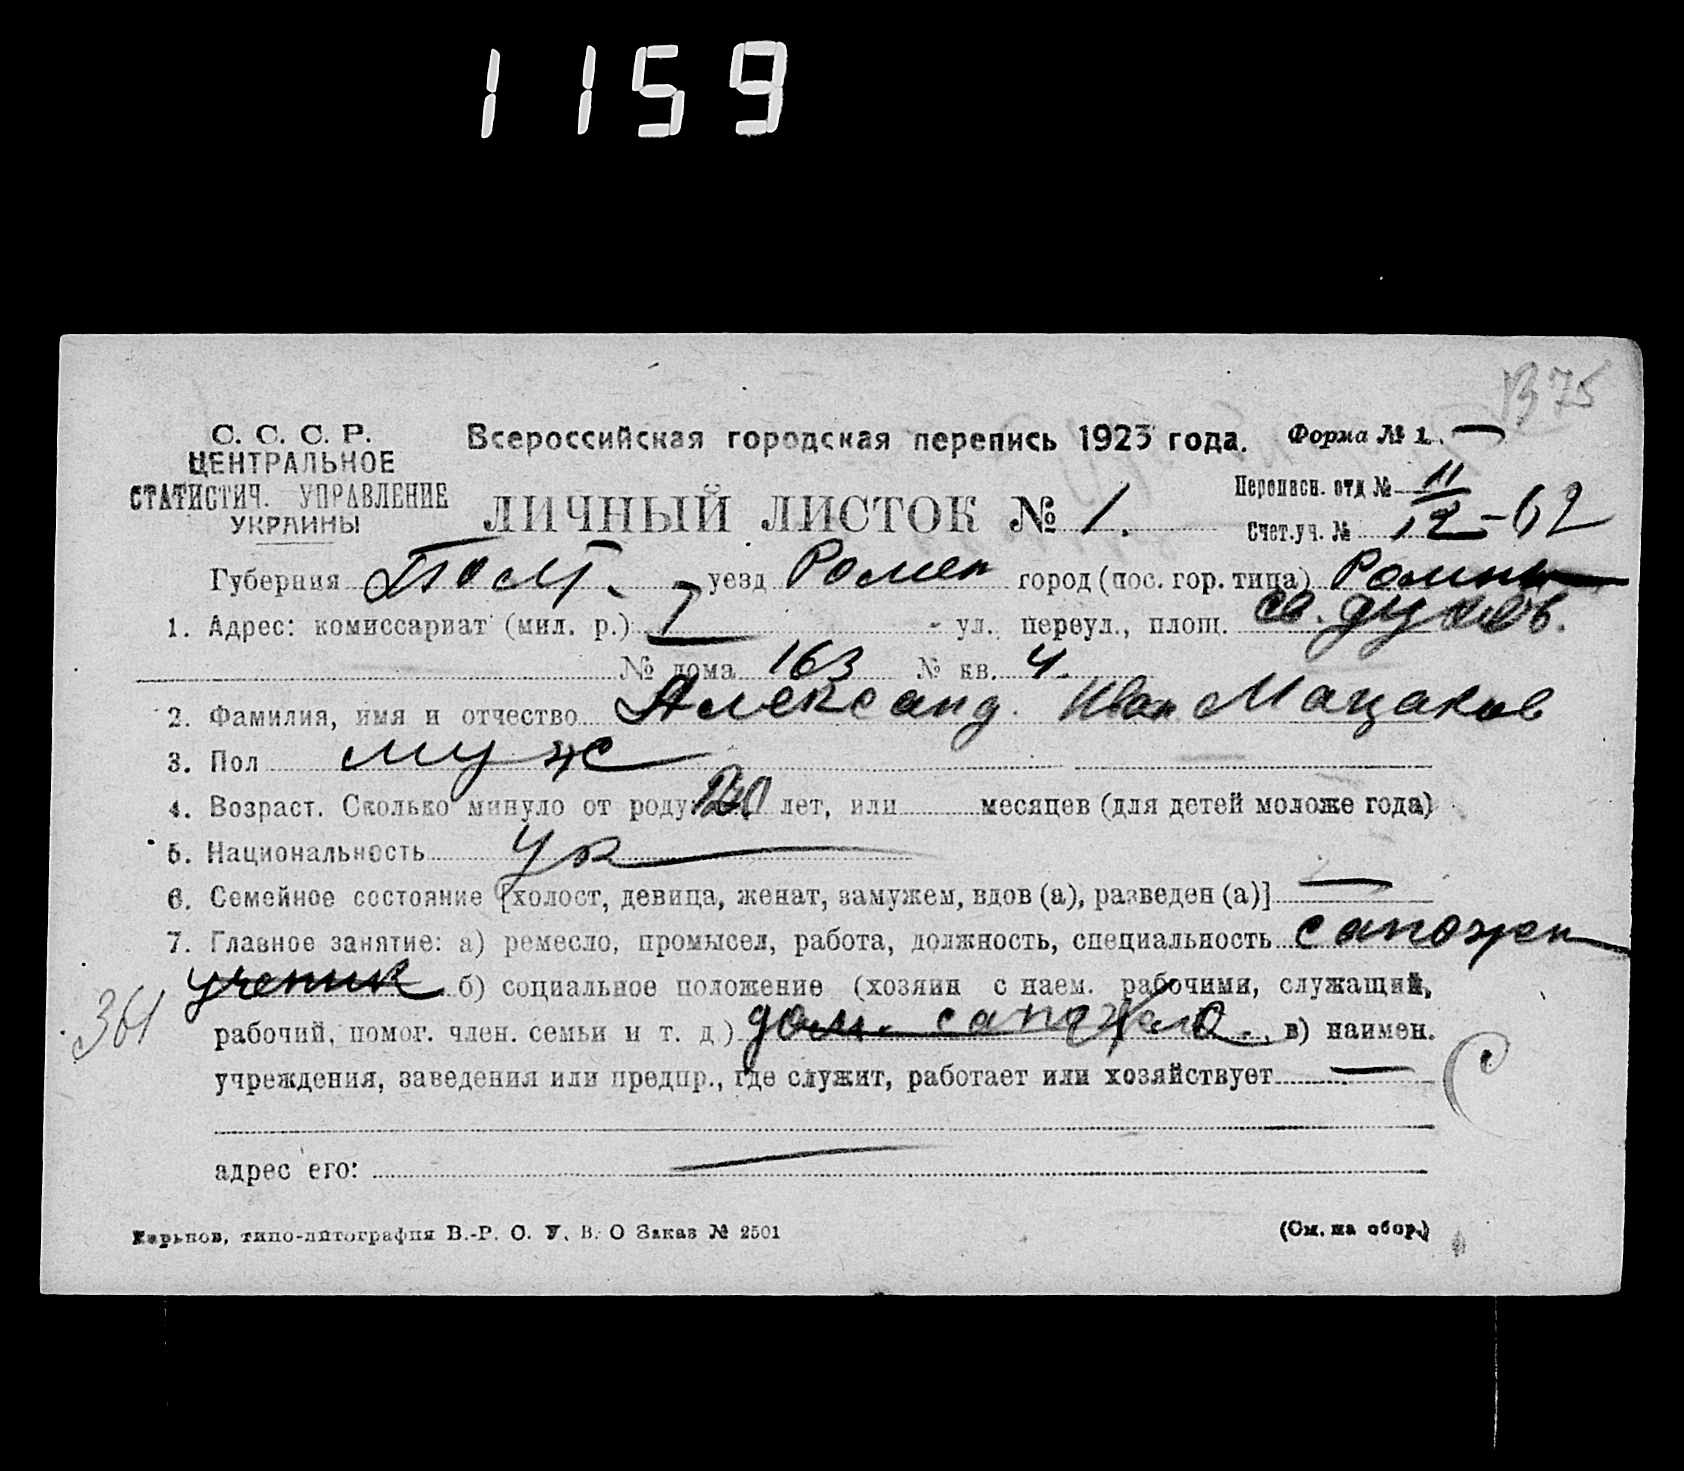 1159
1375
С. С. С. Р.
ЦЕНТРАЛЬНОЕ
СТАТИСТИЧ. УПРАВЛЕНИЕ
УКРАИНЫ
Всероссийская городская перепись 1923 года. Форма № 1.
ЛИЧНЫЙ ЛИСТОК № 1.
Переписн. отд № 11
Счет.уч. № 12-62
Губерния Полт. уезд Ромен город (пос. гор. типа) Ромны
1. Адрес: комиссариат (мил. р.) I ул., переул., площ. св. духов.
№ дома 163 № кв. 4.
2. Фамилия, имя и отчество Александ. Иван Мацаков
3. Пол муж
4. Возраст. Сколько минуло от роду лет, или месяцев (для детей моложе года)
5. Национальность Ук
6. Семейное состояние [холост, девица, женат, замужем, вдов (а), разведен (а)]
7. Главное занятие: а) ремесло, промысел, работа, должность, специальность сапожн
ученик б) социальное положение (хозяин с наем. рабочими, служащий,
361
рабочий, помог. член. семьи и т. д.) дом. в) наимен.
учреждения, заведения или предпр., где служит, работает или хозяйствует
С
адрес его:
Харьков, типо-литография В.-Р. С. У. В. О Заказ № 2501
(См. на обор.)